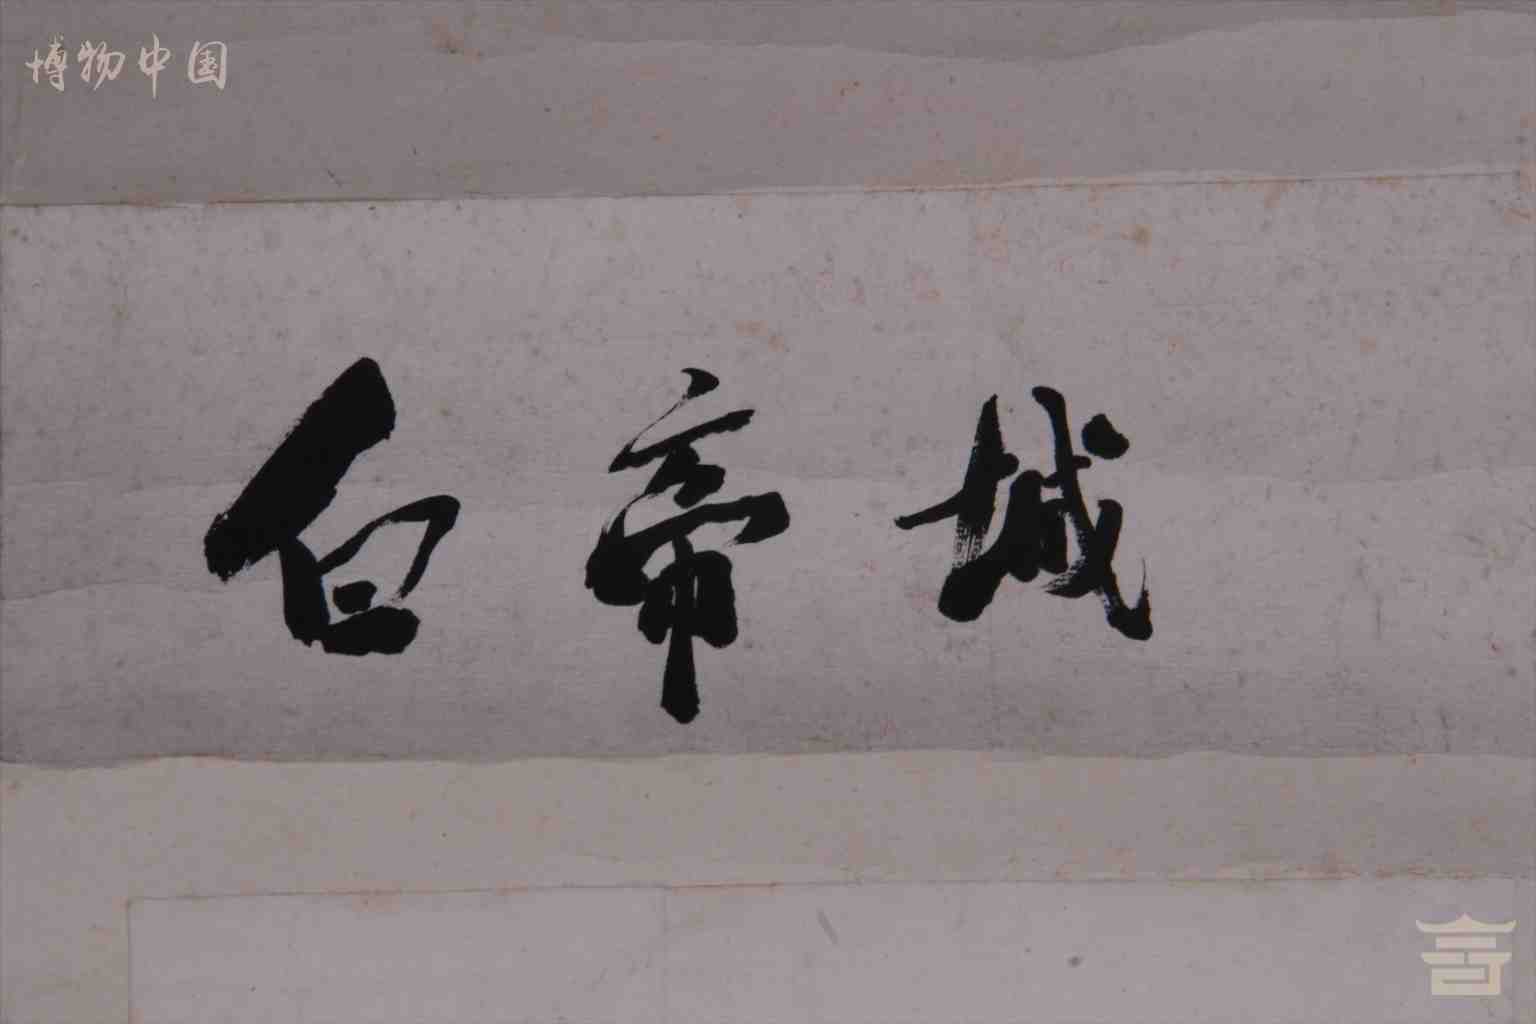 博物中国
白帝城